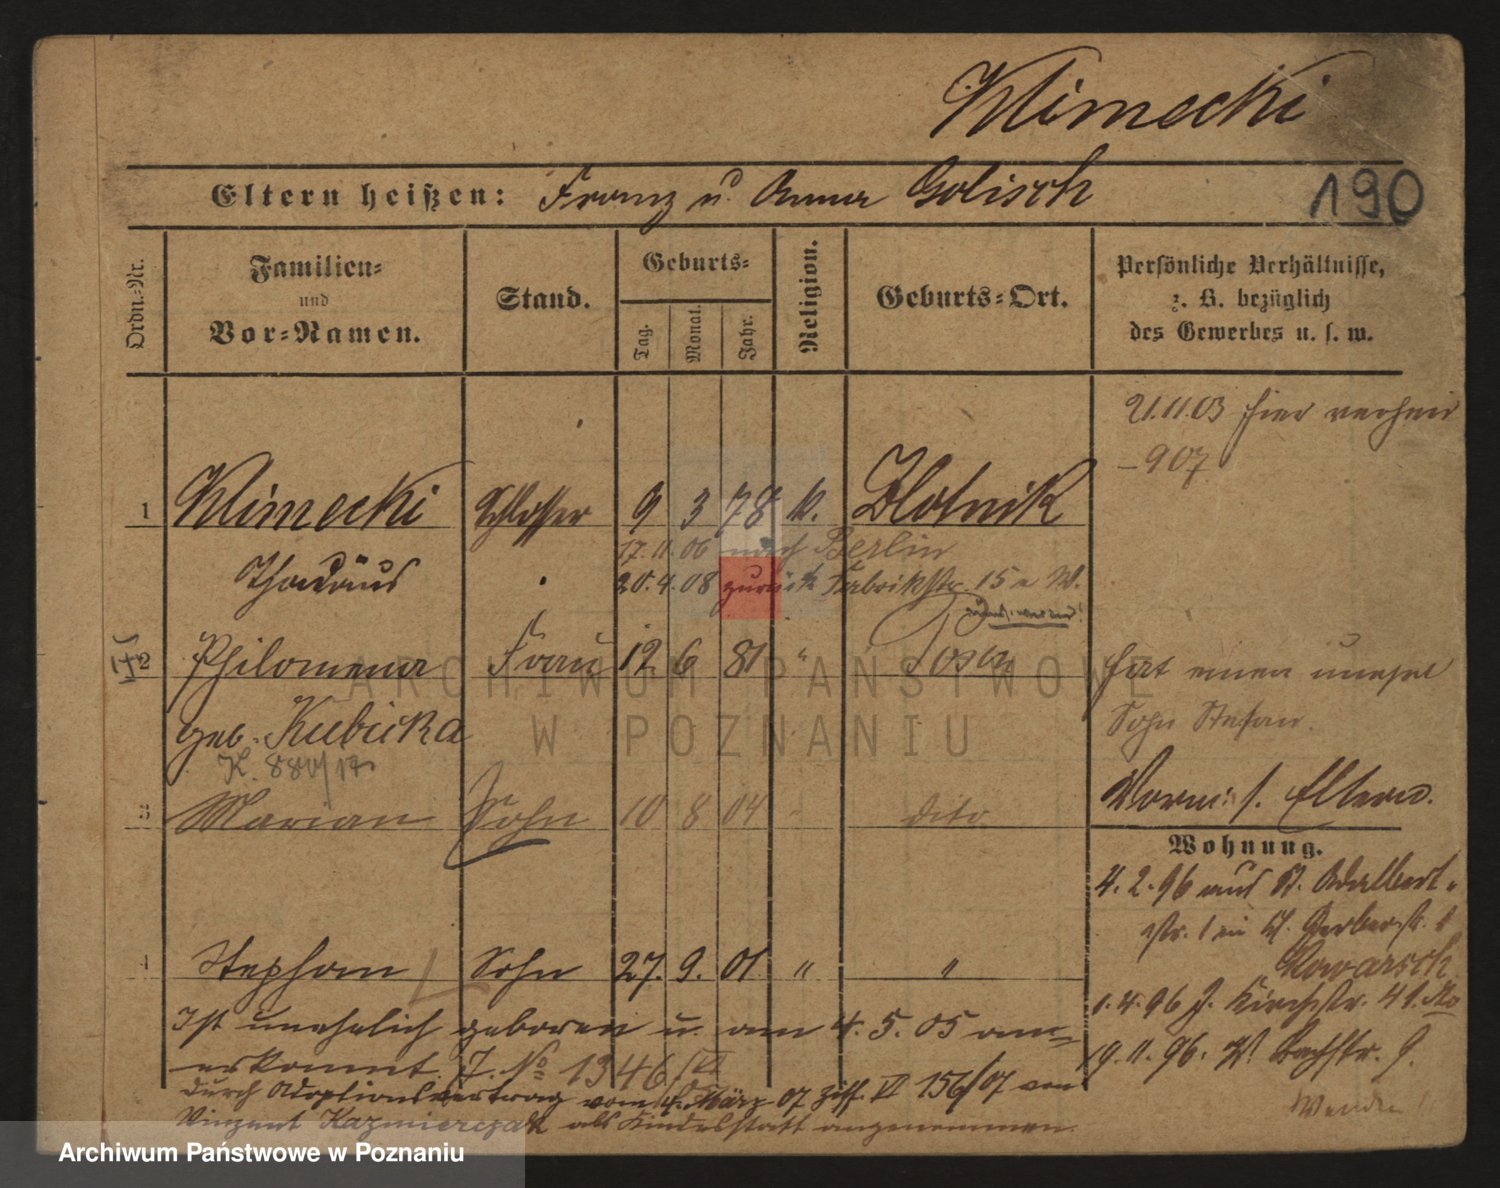 Klimecki
190
Eltern heißen: Franz u. Anna Golisch
Ordn.-Nr.
Familien-
und
Vor-Namen.
Stand.
Geburts-
Tag.
Monat.
Jahr.
Religion.
Geburts-Ort.
Persönliche Verhältnisse,
z. B. bezüglich
des Gewerbes u. s. w.
21.11.03 hier verheir
-907
1 Klimecki Schlosser 9 3 78 k. Zlotnik
17.11.06 nach Berlin
Thadäus
20.4.08 zurück Fabrikstr. 15 a W.
2 Philomena Frau 12. 6 81 " Posen
hat einen unehel
geb. Kubicka
Sohn Stefan.
K. 880/17
Vorm: s. Eltern.
3 Marian Sohn 10 8 04 dito
Wohnung.
4.2.96 aus St. Adalbert-
str. 1 in W. Gerberstr. 1
Nowarsch
4 Stephan Sohn 27. 9. 01 " "
1.4.96 J. Kirchstr. 41.
Ist unehelich geboren u. am 4.5.05 an-
erkannt. J. No 1346/VI
19.11.96. W. Bachstr. 9.
durch Adoptionsvertrag vom 4. März 07 Ziff. VI 156/07 von
Vinzent Kazmierczak als Kindesstatt angenommen.
Wenden!
ARCHIWUM PAŃSTWOWE
W POZNANIU
Archiwum Państwowe w Poznaniu